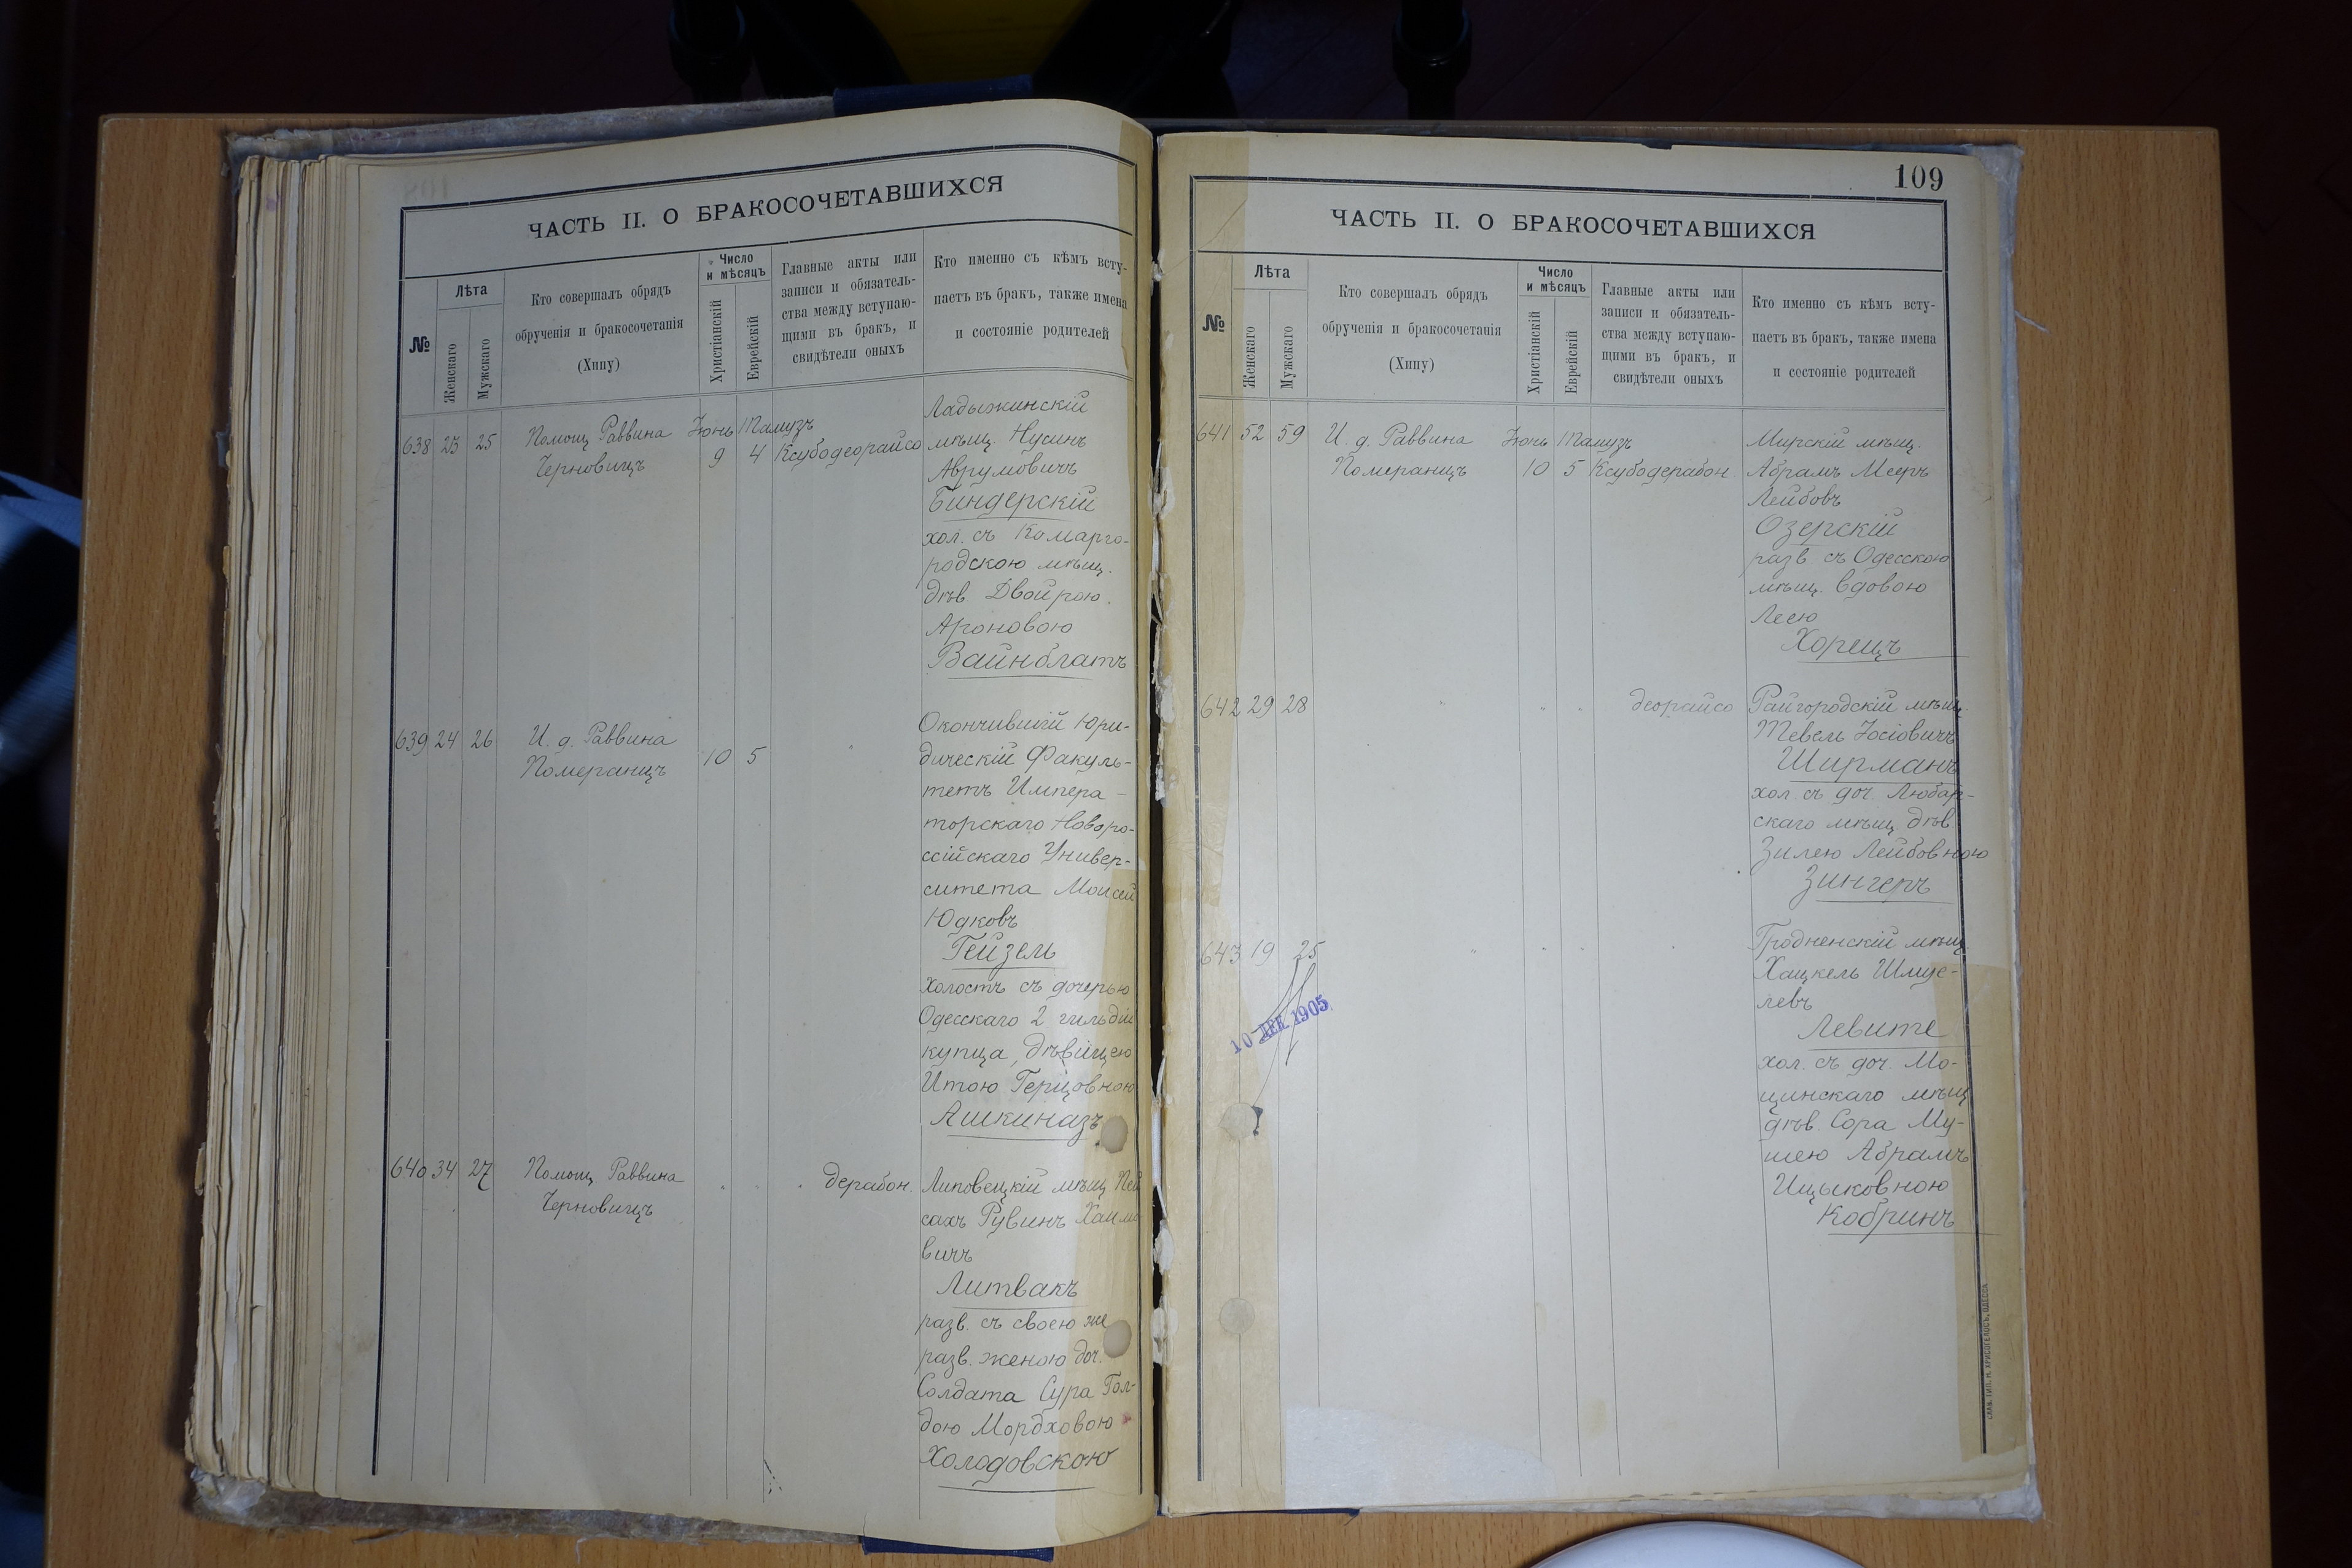 ЧАСТЬ II. О БРАКОСОЧЕТАВШИХСЯ
№
Лѣта
Женскаго
Мужскаго
Кто совершалъ обрядъ
обрученія и бракосочетанія
(Хипу)
Число
и мѣсяцъ
Христіанскій
Еврейскій
Главные акты или
записи и обязатель-
ства между вступаю-
щими въ бракъ, и
свидѣтели оныхъ
Кто именно съ кѣмъ всту-
паетъ въ бракъ, также имена
и состояніе родителей
638 23 25 Помощ Раввина
Черновицъ
Іюнь Тамузъ
9 4 Ксубодеорайсо
Ладыжинскій
мѣщ. Нусинъ
Аврумовичъ
Биндерскій
хол. съ Комарго-
родскою мѣщ.
дѣв Двойрою
Ароновою
Вайнблатъ
639 24 26 И. д. Раввина
Померанцъ
10 5 "
Окончившій Юри-
дическій Факуль-
тетъ Импера-
торскаго Новоро-
ссійскаго Универ-
ситета Моисей
Юдковъ
Гейзель
Холостъ съ дочерью
Одесскаго 2 гильдіи
купца, дѣвицею
Итою Герцовною
Ашкиназъ
640 34 27 Помощ Раввина
Черновицъ
" " " дерабон.
Липовецкій мѣщ Пей
сахъ Рувинъ Хаимо
вичъ
Литвакъ
разв. съ своею же
разв. женою доч.
Солдата Сура Гол-
дою Мордховою
Холодовскою
109
ЧАСТЬ II. О БРАКОСОЧЕТАВШИХСЯ
№
Лѣта
Женскаго
Мужскаго
Кто совершалъ обрядъ
обрученія и бракосочетанія
(Хипу)
Число
и мѣсяцъ
Христіанскій
Еврейскій
Главные акты или
записи и обязатель-
ства между вступаю-
щими въ бракъ, и
свидѣтели оныхъ
Кто именно съ кѣмъ всту-
паетъ въ бракъ, также имена
и состояніе родителей
641 52 59 И. д. Раввина
Померанцъ
Іюнь Тамузъ
10 5 Ксубодерабон
Мирскій мѣщ.
Абрамъ Мееръ
Лейбовъ
Озерскій
разв съ Одесскою
мѣщ. вдовою
Леею
Хорецъ
642 29 28 " " " деорайсо
Райгородскій мѣщ.
Тевель Іосіовичъ
Ширманъ
хол. съ доч. Любар-
скаго мѣщ дѣв
Зилею Лейбовною
Зингеръ
643 19 25 " " " "
Гродненскій мѣщ
Хацкель Шмуе-
левъ
Левите
хол. съ доч. Мо-
цинскаго мѣщ
дѣв. Сора Му-
шею Абрамъ
Ицыковною
Кобринъ
10 ДЕК 1905
СЛАВ. ТИП. Н. ХРИСОГЕЛОСЪ, ОДЕССА